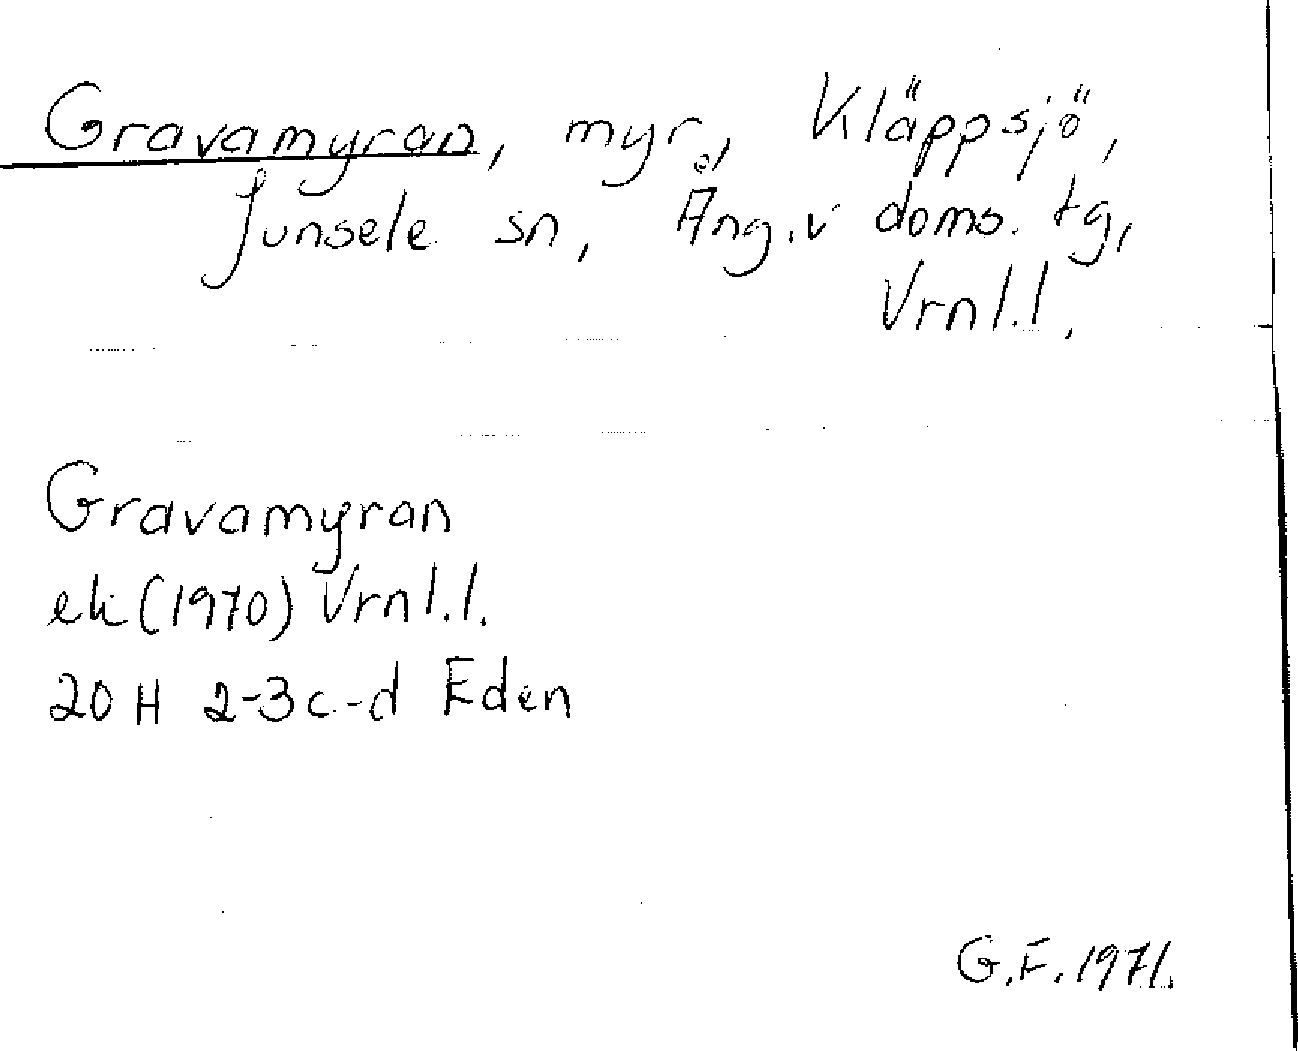 Gravamyran, myr, Kläppsjö,
Junsele sn, Ång.v doms. tg,
Vrnl.l.
Gravamyran
ek (1970) Vrnl.l.
20 H 2-3c-d Eden
G.F. 1971.